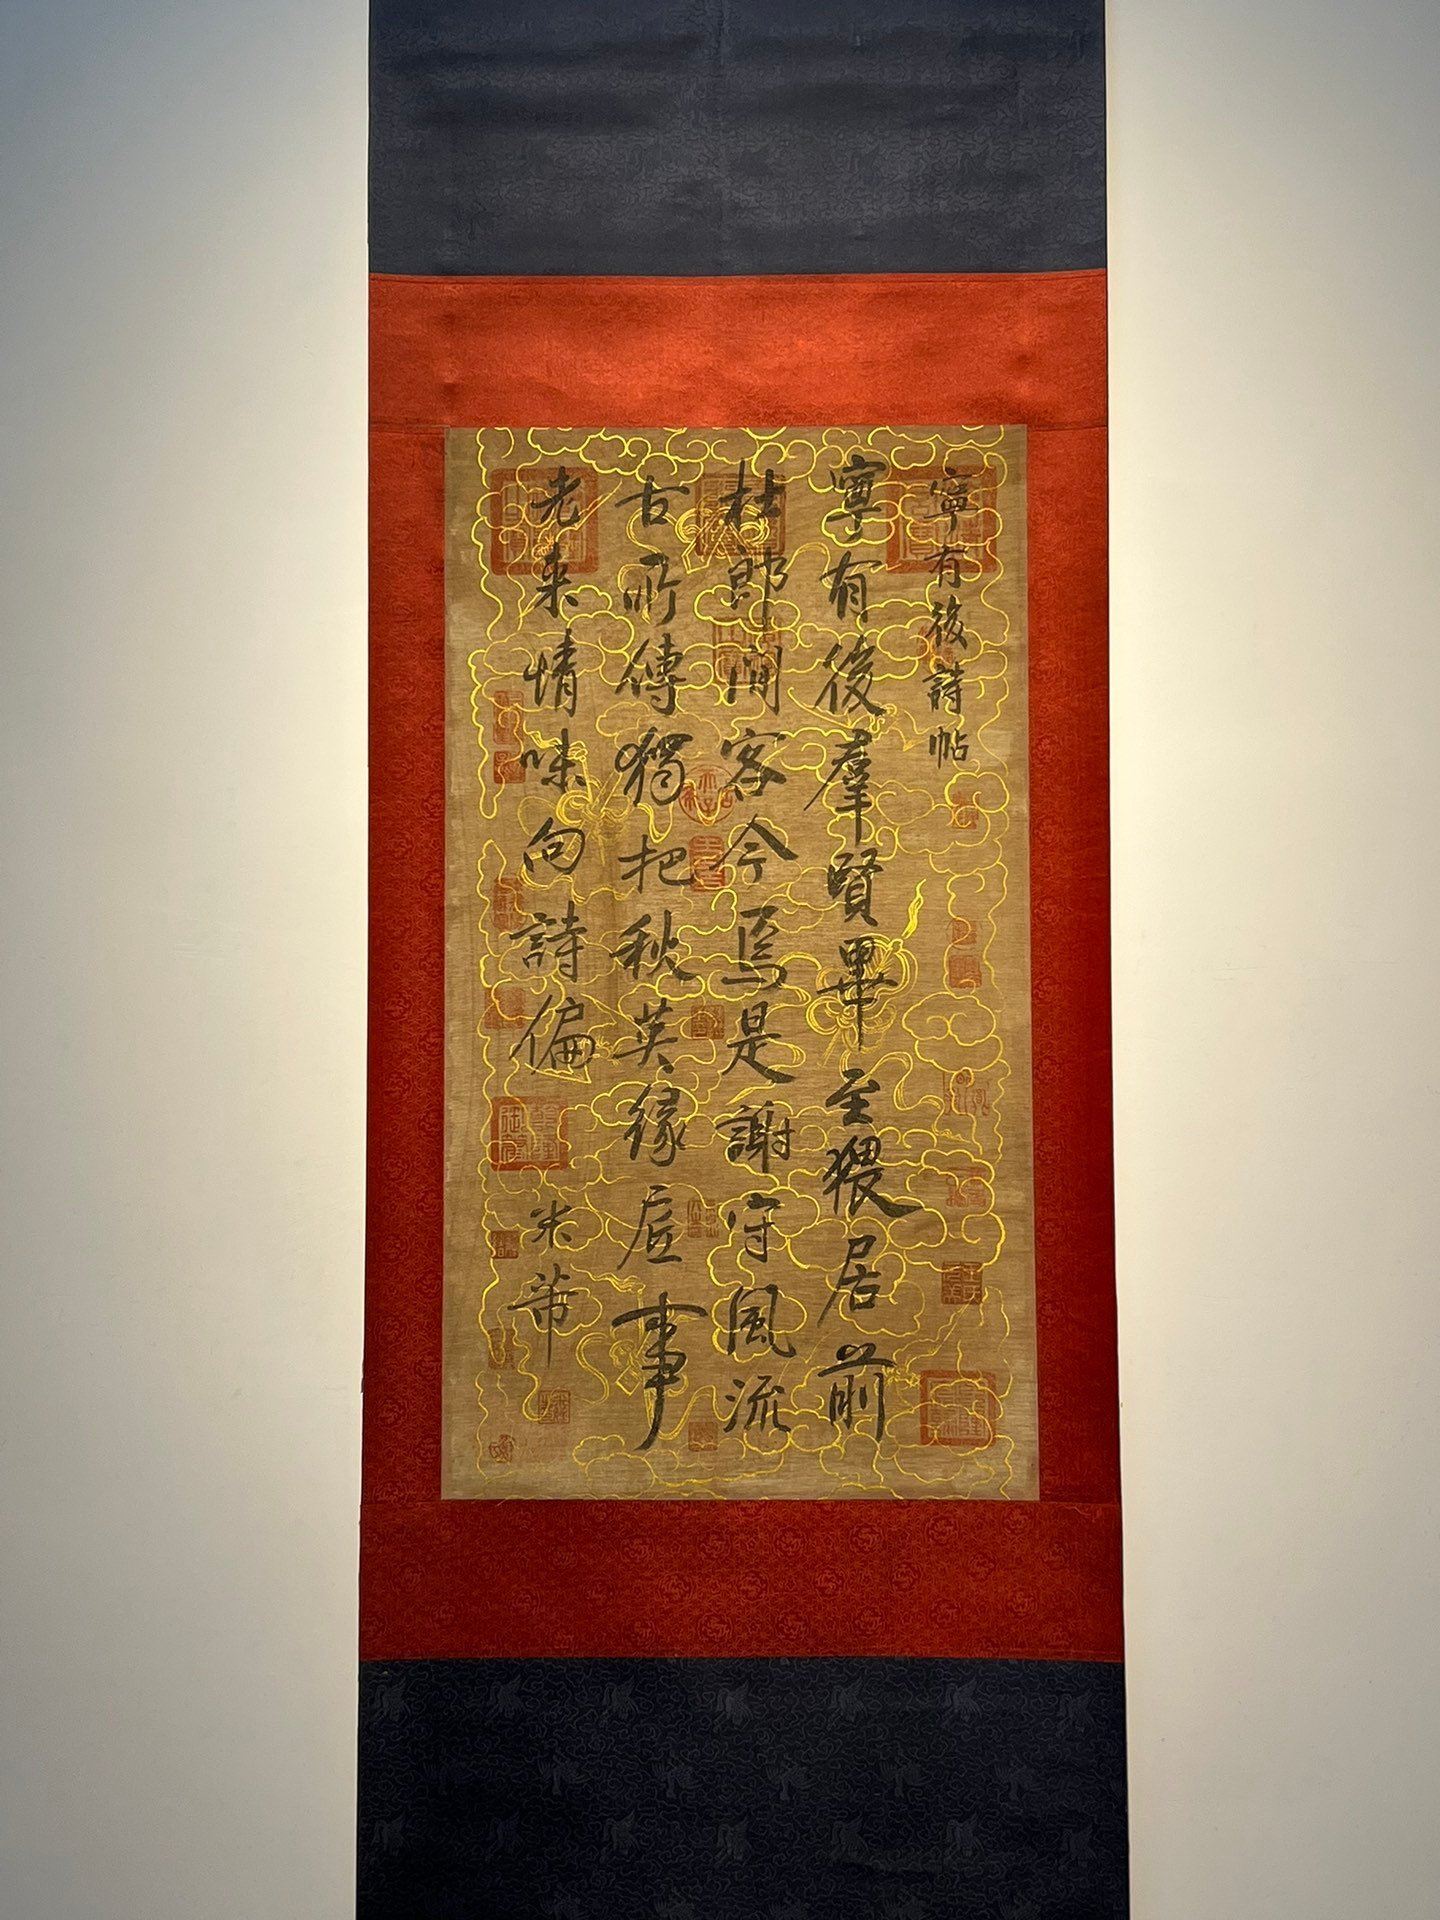 寧有後詩帖
寧有後羣賢畢至猥居前
杜郎閒客今焉是謝守風流
古所傳獨把秋英緣底事
老來情味向詩偏
米芾